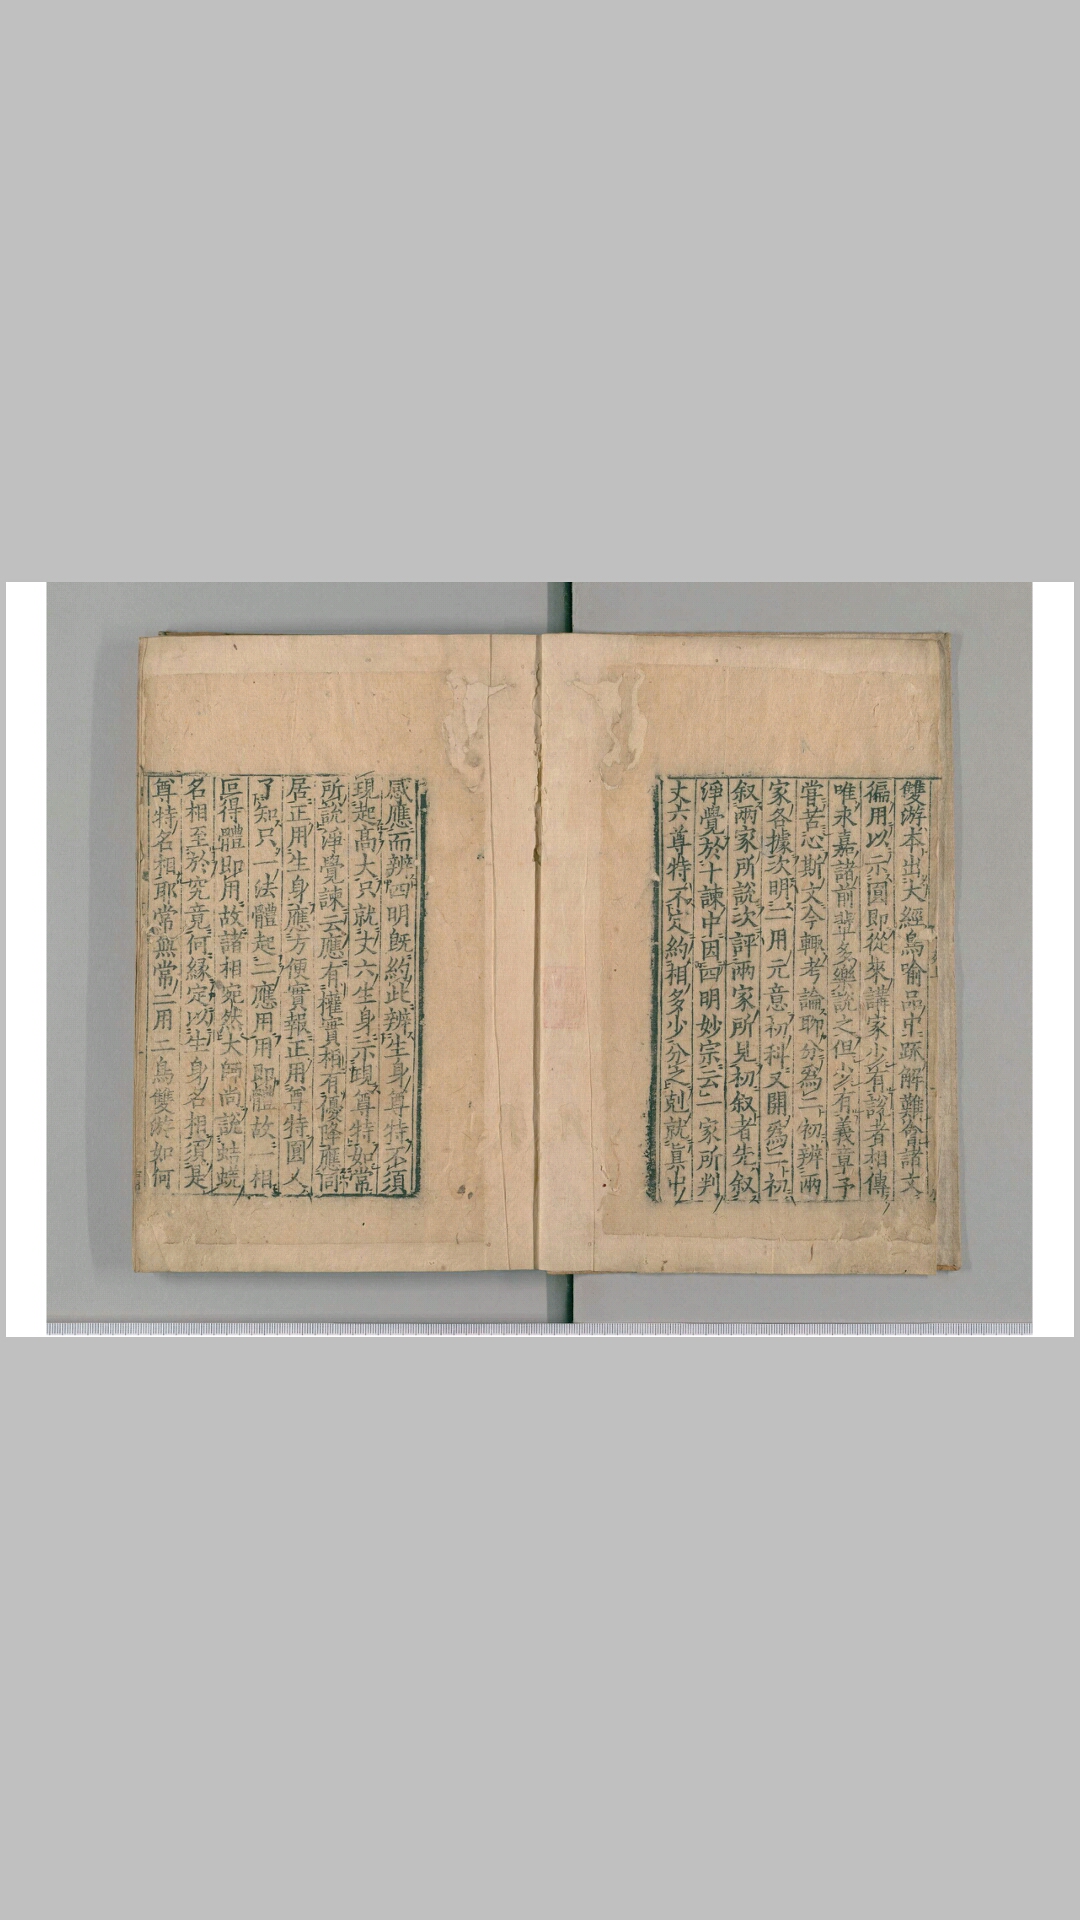 雙游本出大經鳥喻品中䟽解難會諸文
徧用以示圓即從來講家少有說者相傳
唯永嘉諸前輩多樂說之但少有義章予
嘗苦心斯文今輙考論聊分爲二初辨兩
家各據次明二用元意初科又開爲二初
叙兩家所說次評兩家所見初叙者先叙
淨覺於十諫中因四明妙宗云一家所判
丈六尊特不定約相多少分之剋就眞中
感應而辨四明旣約此辨生身尊特不須
現起髙大只就丈六生身示現尊特如常
所說淨覺諫云應有權實相有優降應同
居正用生身應方便實報正用尊特圓人
了知只一法體起二應用用即體故一相
叵得體即用故諸相宛然大師尚說蛣蜣
名相至於究竟何縁定以生身名相須是
尊特名相耶常無常二用二鳥雙游如何